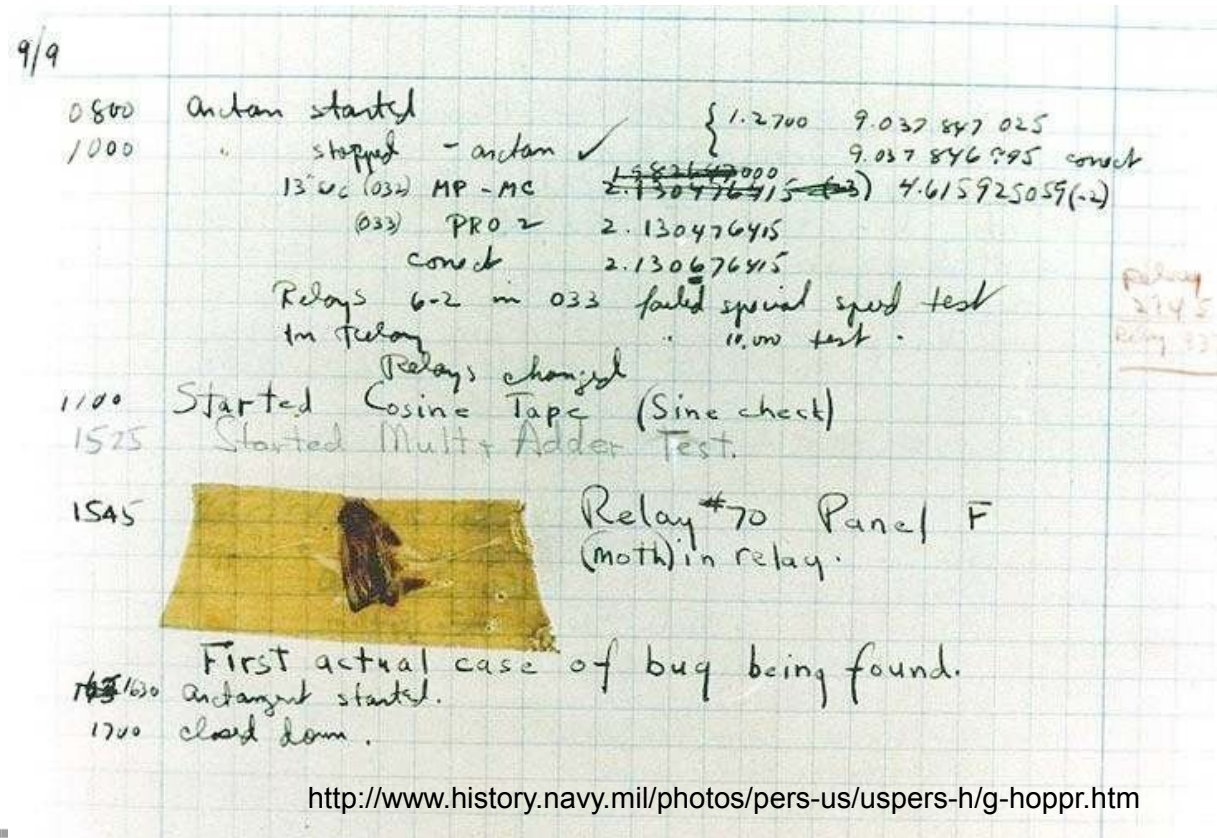 9/9
0800 arctan started { 1.2700 9.037 847 025
1000 " stopped - arctan ✓ 9.037 846 995 correct
13" uc (032) MP - MC 1.982647000 2.130476415 (-3) 4.615925059(-2)
(033) PRO 2 2.130476415
correct 2.130676415
Relays 6-2 in 033 failed special speed test
In Relay " 10,000 test .
Relay
2145
Relay 337
Relays changed
1100 Started Cosine Tape (Sine check)
1525 Started Mult + Adder Test.
1545 Relay #70 Panel F
(moth) in relay.
First actual case of bug being found.
1630 arctangent started.
1700 closed down.
http://www.history.navy.mil/photos/pers-us/uspers-h/g-hoppr.htm